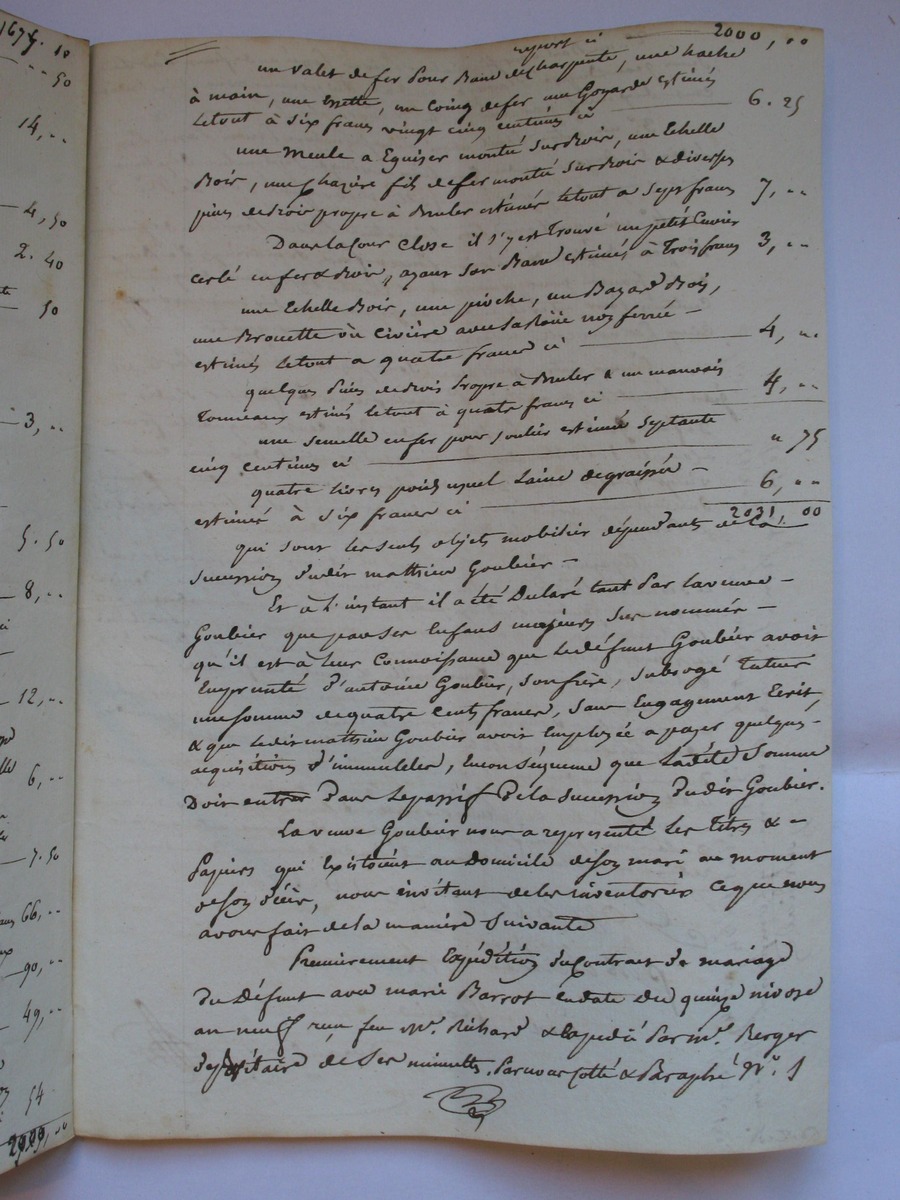 1675. 10
-- 50
14, --
4, 50
2. 40
50
3, --
5. 50
8, --
12, --
6, --
7. 50
66, --
90, --
49, --
54
2000, --
report ci 2000, --
un valet de fer pour Banc de charpente, une hache
à main, une Essette, un Coing de fer une Goyarde estimés
letout à Six francs vingt cinq centimes ci 6. 25
une Meule a Eguiser monté Sur Bois, une Echelle
Bois, une fil de fer monté Sur Bois & diverses
pieces de Bois propre à Bruler estimés letout a Sept francs 7, --
Dans la Cour Close il s'y est Trouvé un petit Cuvier
cerclé en fer & Bois, ayant Son Banc estimés à Trois francs 3, --
une Echelle Bois, une pioche, un Bayard Bois,
une Brouette ou Civière avec Sa Roüe non ferrée
estimés letout a quatre francs ci 4, --
quelques Pieces de Bois Propre à Bruler & un mauvais
Tonneaux estimés letout à quatre francs ci 4, --
une Semelle en fer pour Soulier estimée Septante
cinq centimes ci " 75
quatre livres poids usuel Laine degraissée
estimés à Six francs ci 6, --
2031, 00
qui Sont les Seuls objets mobilier dépendants de la
Sucession dudit mathieu Goubier
Et à L'instant il a été Declaré tant Par la veuve
Goubier que par Ses Enfans majeurs Sus nommés
qu'il est à leur Connoissance que le défunt Goubier avoit
Emprunté d'antoine Goubier, Son frère, Subrogé Tuteur
une Somme de quatre Cents francs, Sans Engagement Ecrit
& que ledit mathieu Goubier avoit Employée a payer quelques
acquisitions d'immeubles, en conséquence que ladite Somme
Doit entrer dans le passif de la Sucession dudit Goubier.
La veuve Goubier nous a representé les Titres &
Papiers qui Existoient au Domicile de Son mari au moment
de Son décès, nous invitant de les inventoriés Ce que nous
avons fait de la manière Suivante
Premièrement Expédition du Contrat de mariage
du Défunt avec marie Barrot en date du quinze nivose
an neuf reçu feu Mr. Richard & Expedié Par mr. Berger
depositaire de Ses minuttes. Par nous Cotté & Paraphé Nº. 1